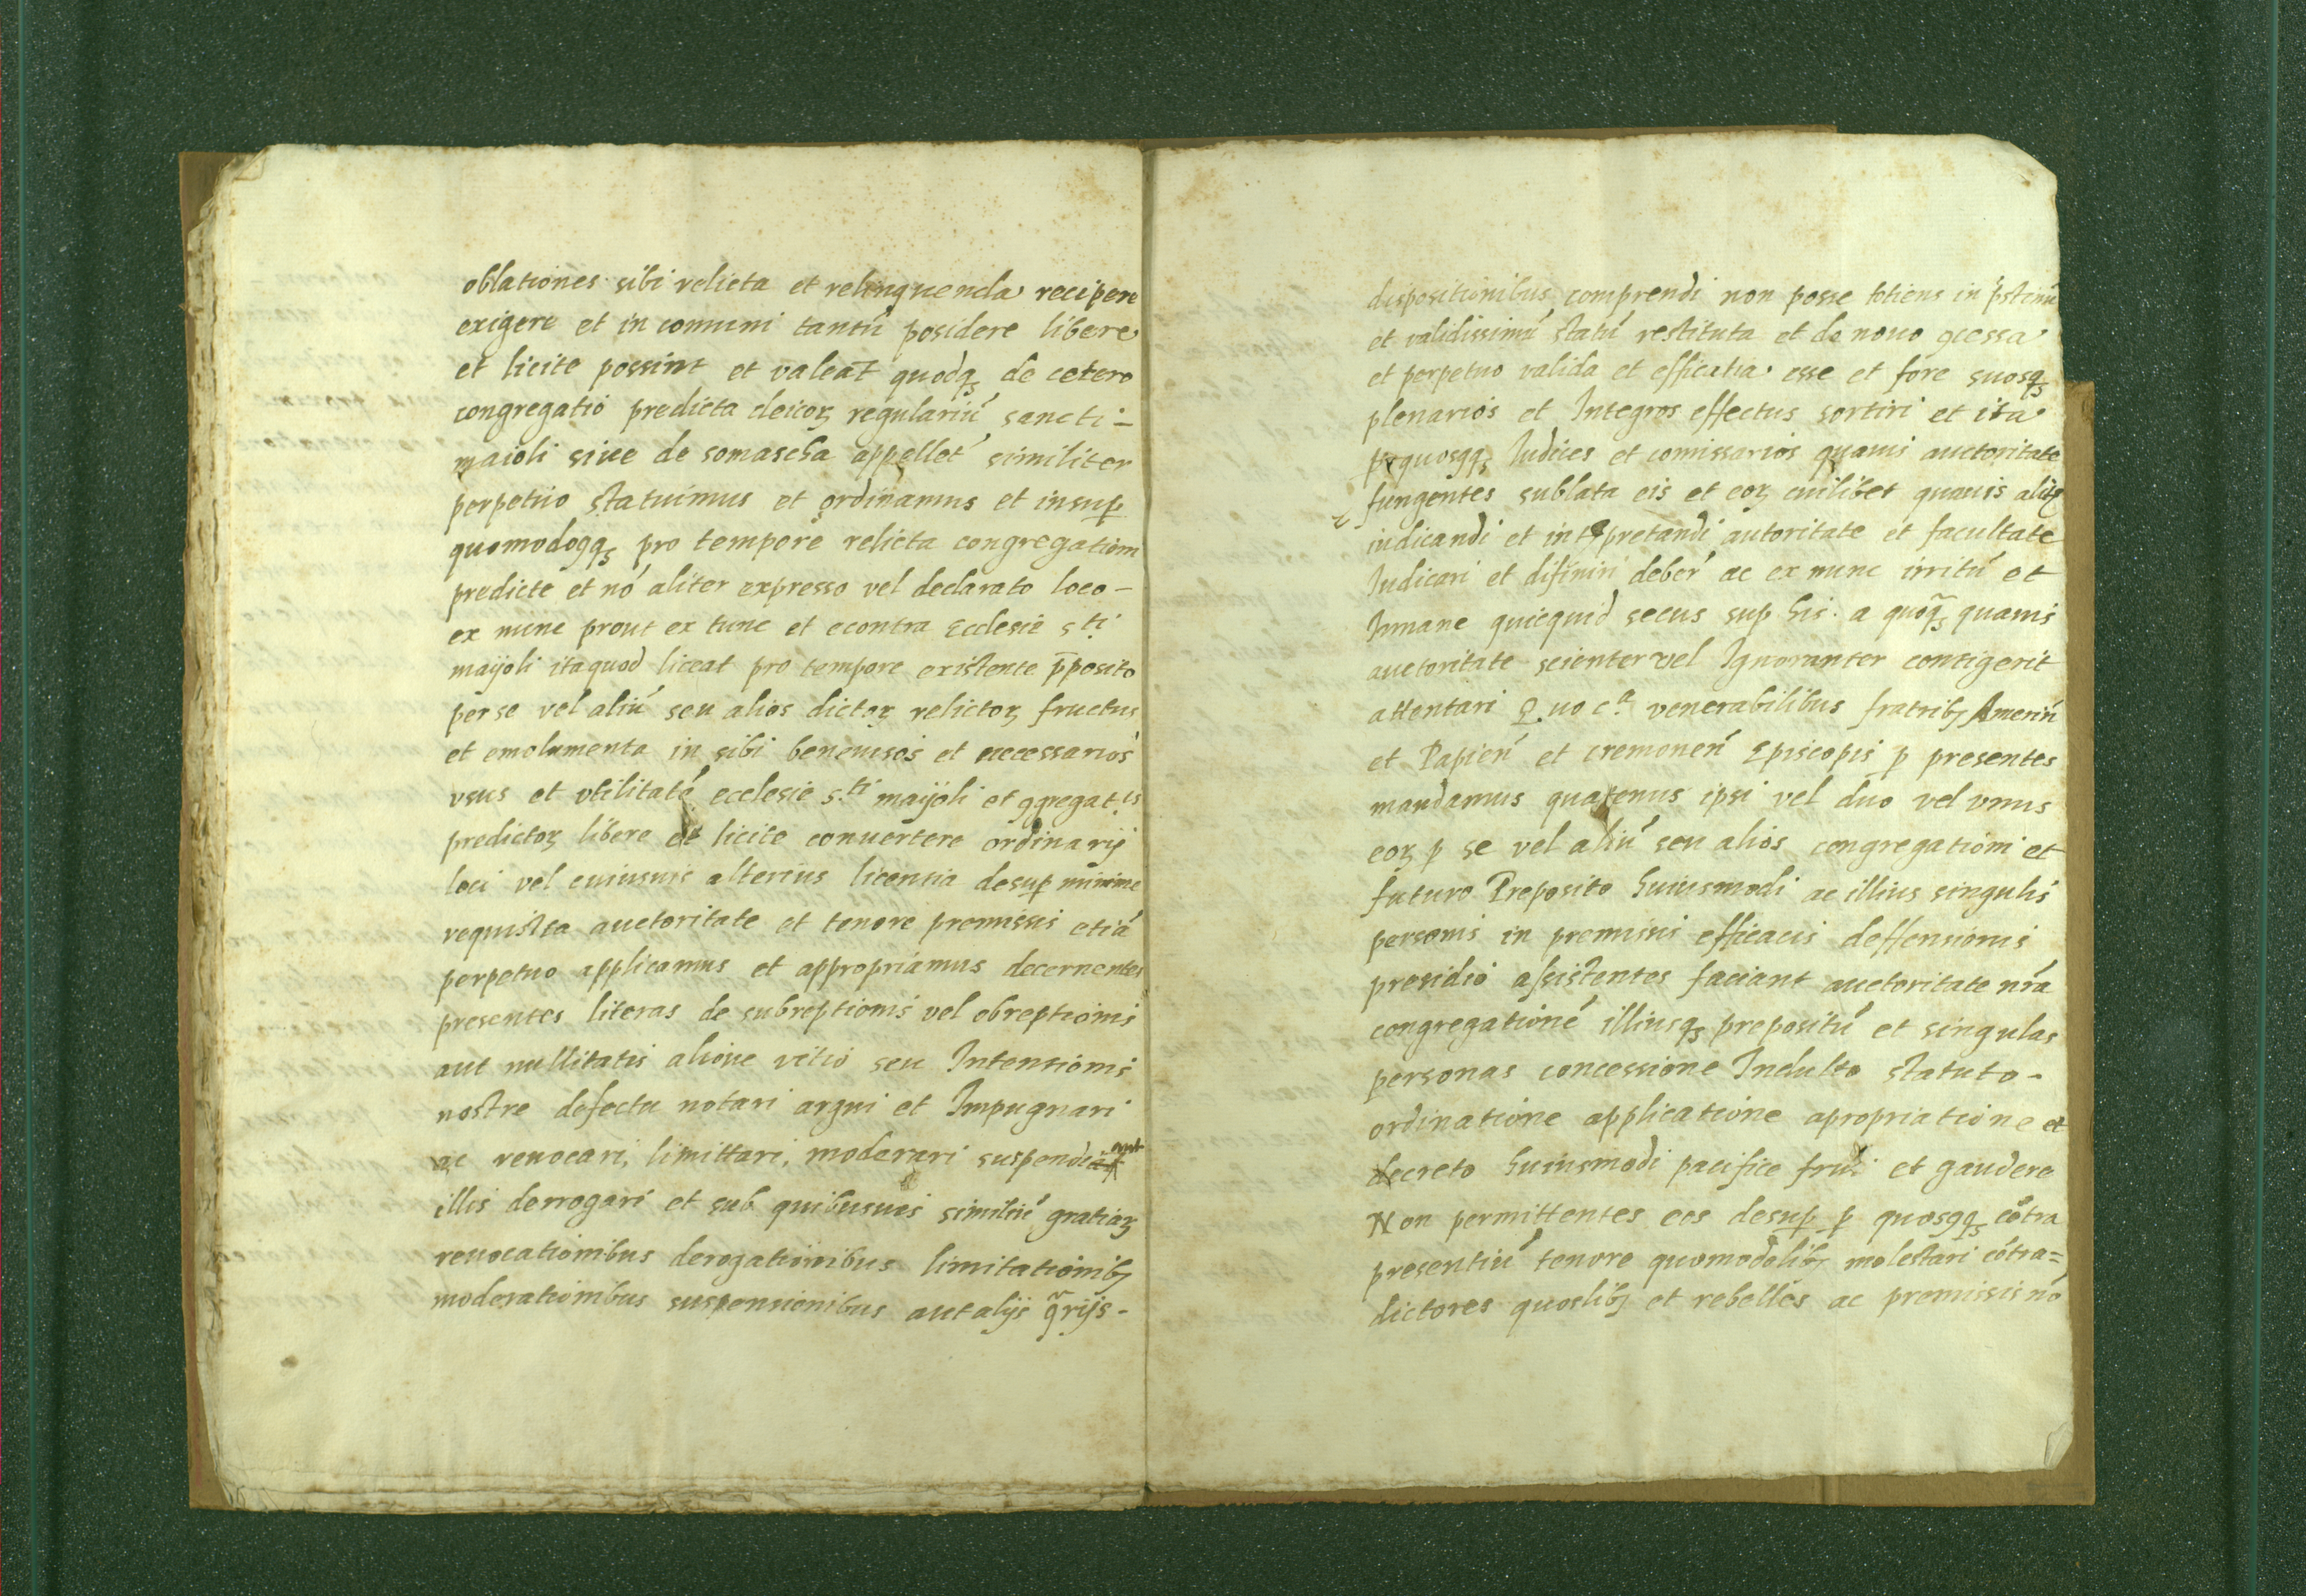 oblationes sibi relicta et relinquenda recipere
exigere et in comuni tantú posidere libere
et licite possint et valeāt quodqꝫ de cetero
congregatio predicta cleicoꝝ regulariú sancti -
maioli siue de somascha appellet' similiter
perpetuo statuimus et ordinamus et insuꝑ
quomodoqqꝫ pro tempore relicta congregationi
predicte et nó aliter expresso vel declarato loco -
ex nunc prout ex tunc et econtra Ecclesie s.ti
maijoli itaquod liceat pro tempore existente p̄posito
per se vel aliú seu alios dictoꝝ relictoꝝ fructus
et emolumenta in sibi beneuisos et necessarios
vsus et vtilitaté ecclesie s.ti maijoli et ꝯgregat.is
predictoꝝ libere et licite conuertere ordinarij
loci vel cuiusuis alterius licentia desuꝑ minime
requisita auctoritate et tenore premissis etiá
perpetuo applicamus et appropriamus decernentes
presentes literas de subreptionis vel obreptionis
aut nullitatis alioue vitio seu Intentionis
nostre defectu notari argui et Impugnari
ac reuocari, limittari, moderari suspendi aut
illis derrogari et sub quibusuis similiú gratiaꝝ
reuocationibus derogationibus limitationibꝫ
moderationibus suspensionibus aut alijs q̃rijs -
dispositionibus comprendi non posse totiens in pstinú
et validissimú statú restituta et de nouo ꝯcessa
et perpetuo valida et efficatia esse et fore suosqꝫ
plenarios et Integros effectus sortiri et ita
per quosqqꝫ Iudices et comissarios quauis auctoritate
fungentes sublata eis et eoꝝ cuilibet quauis alit
iudicandi et intꝑpretandi autoritate et facultate
Iudicari et difiniri deber' ac ex nunc irritú et
Inmane quicquid secus sup his a quoqꝫ quauis
auctoritate scienter vel Ignoranter contigerit
attentari Quo c.a venerabilibus fratribꝫ Amerin'
et Papien' et cremonen' Episcopis ꝑ presentes
mandamus quatenus ipsi vel duo vel vnus
eoꝝ ꝑ se vel aliú seu alios congregationi et
futuro Preposito huiusmodi ac illius singulis
personis in premissis efficacis deffensionis
presidio assistentes faciant auctoritate nr̃a
congregationé illiusqꝫ prepositú et singulas
personas concessione Indulto statuto -
ordinatione applicatione apropriatione et
decreto huiusmodi pacifice frui et gaudere
Non permittentes eos desuꝑ ꝑ quosqqꝫ cótra
presentiú tenore quomodolibꝫ molestari cótra=
dictores quoslibꝫ et rebelles ac premissis nó